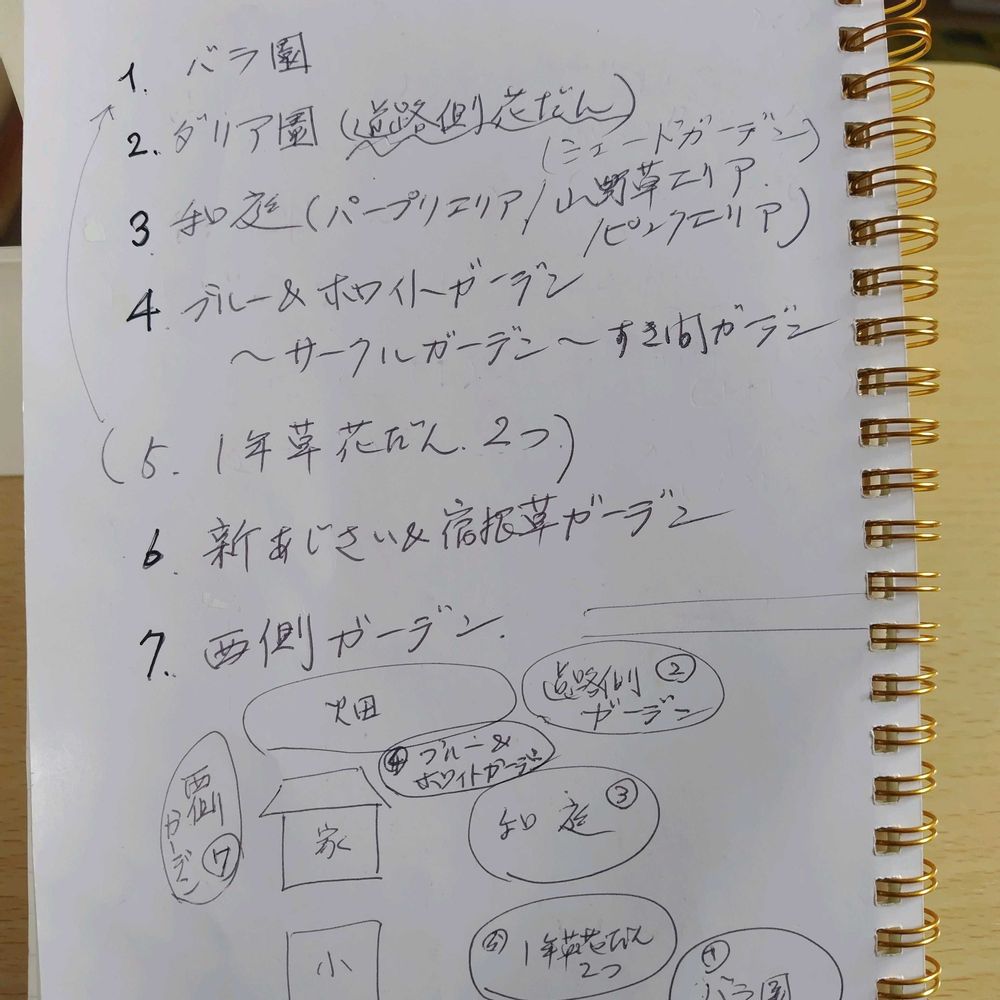 1. バラ園
2. ダリア園 (道路側花だん)
(シェードガーデン)
3 和庭 (パープリエリア/山野草エリア
/ピンクエリア)
4 ブルー&ホワイトガーデン
〜サークルガーデン〜すき間ガーデン
(5. 1年草花だん. 2つ.)
6. 新あじさい&宿根草ガーデン
7. 西側ガーデン.
畑
道路側②
ガーデン
④ ブルー&
ホワイトガーデン
西側
ガーデン
⑦
家
和庭③
小
⑤ 1年草花だん
2つ
①
バラ園